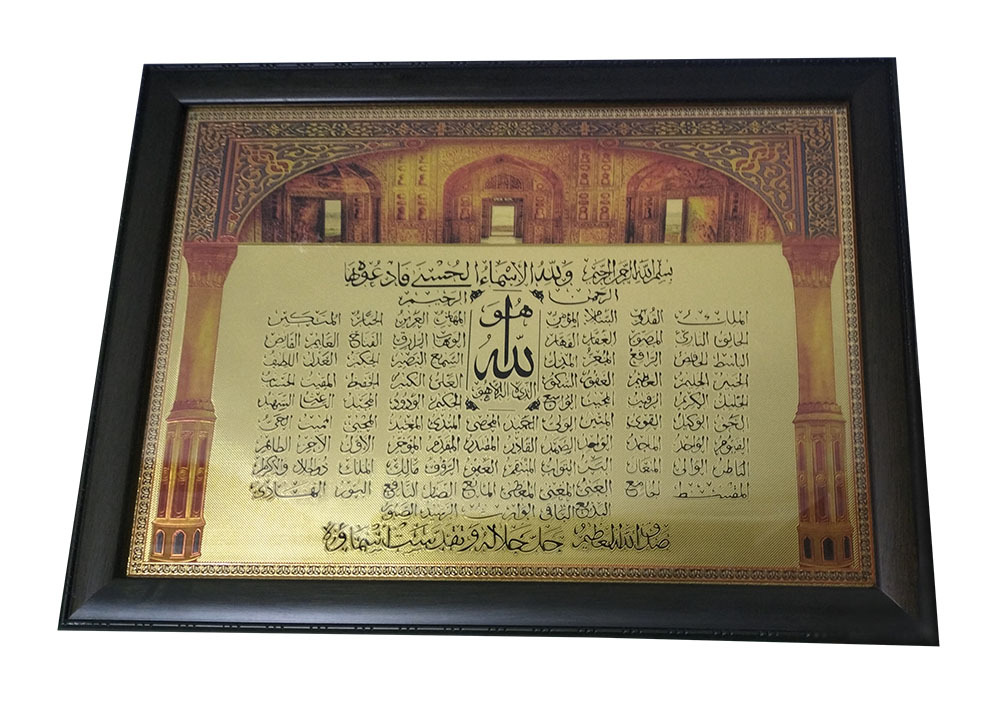 بسم الله الرحمن الرحيم ولله الاسماء الحسنى فادعوه بها
الرحمن الرحيم
هو الله
الذي لا اله الا هو
الملك القدوس السلام المؤمن المهيمن العزيز الجبار المتكبر
الخالق البارئ المصور الغفار القهار الوهاب الرزاق الفتاح العليم القابض
الباسط الخافض الرافع المعز المذل السميع البصير الحكم العدل اللطيف
الخبير الحليم العظيم الغفور الشكور العلي الكبير الحفيظ المقيت الحسيب
الجليل الكريم الرقيب المجيب الواسع الحكيم الودود المجيد الباعث الشهيد
الحق الوكيل القوي المتين الولي الحميد المحصي المبدئ المعيد المحيي المميت الحي
القيوم الواجد الماجد الواحد الصمد القادر المقتدر المقدم المؤخر الاول الاخر الظاهر
الباطن الوالي المتعال البر التواب المنتقم العفو الرؤف مالك الملك ذوالجلال والاكرام
المقسط الجامع الغني المغني المعطي المانع الضار النافع النور الهادي
البديع الباقي الوارث الرشيد الصبور
صدق الله العظيم جل جلاله وتقدست اسماؤه